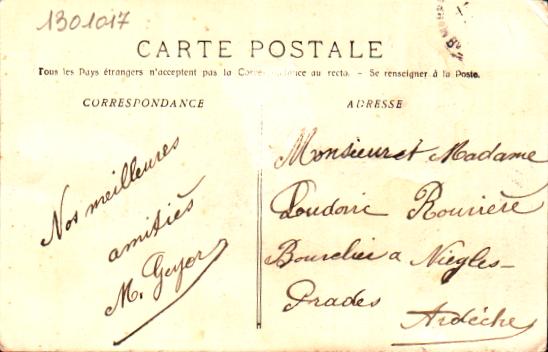 1301017
CARTE POSTALE
Tous les Pays étrangers n'acceptent pas la Correspondance au recto. - Se renseigner à la Poste.
CORRESPONDANCE
ADRESSE
Nos meilleures
amitiés
M. Geyer
Monsieur et Madame
Rouvière
Bourelier a Niègles-
Prades
Ardèche